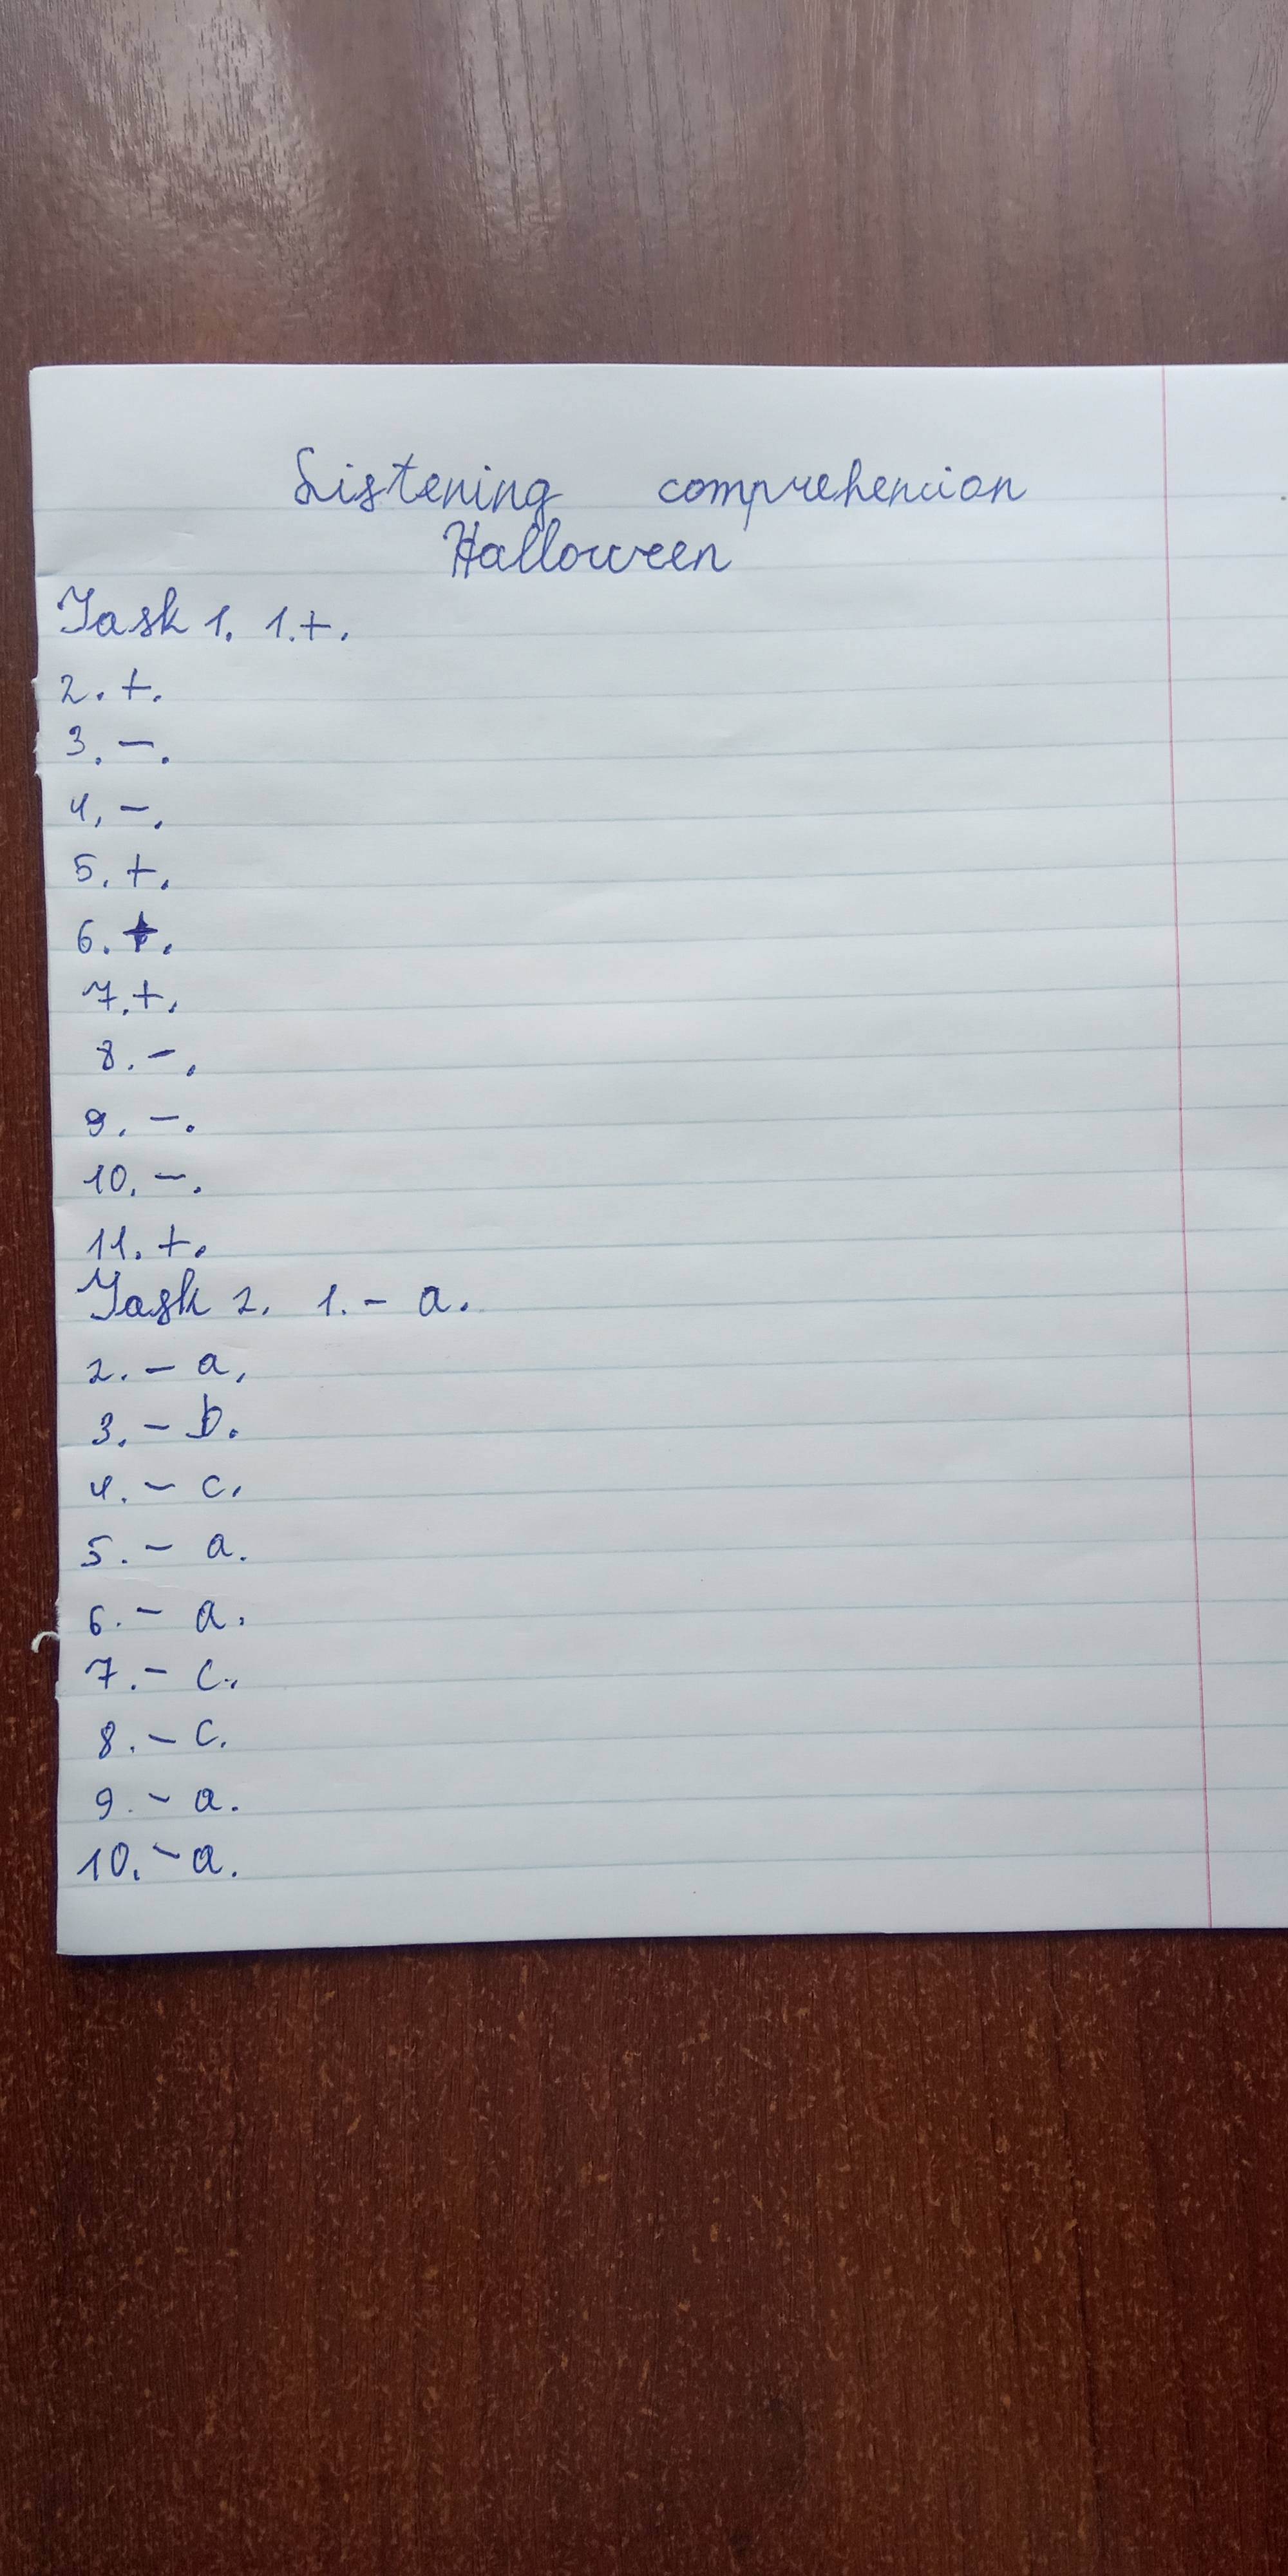 Listening comprehencion
Halloween
Task 1. 1.+.
2. +.
3. –.
4. –.
5. +.
6. +.
7. +.
8. –.
9. –.
10. –.
11. +.
Task 2. 1. – a.
2. – a.
3. – b.
4. – c.
5. – a.
6. – a.
7. – c.
8. – c.
9. – a.
10. – a.